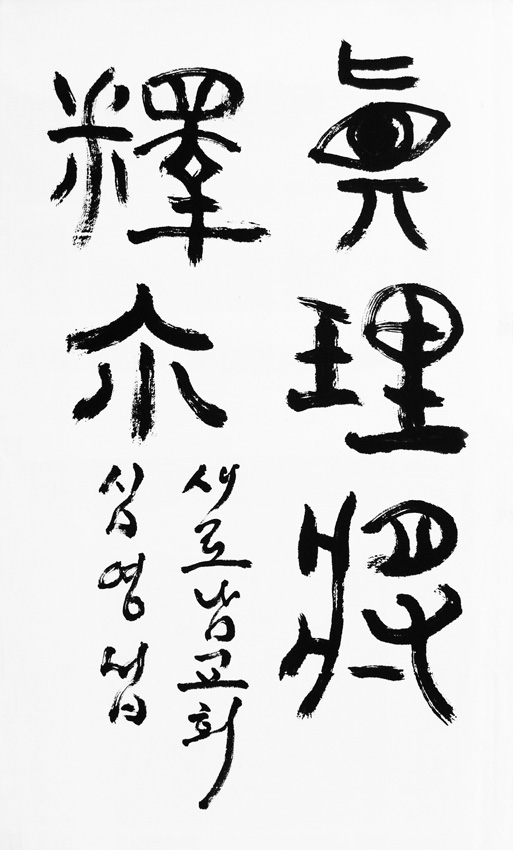 眞理將
釋尒
새로남교회
심영섭